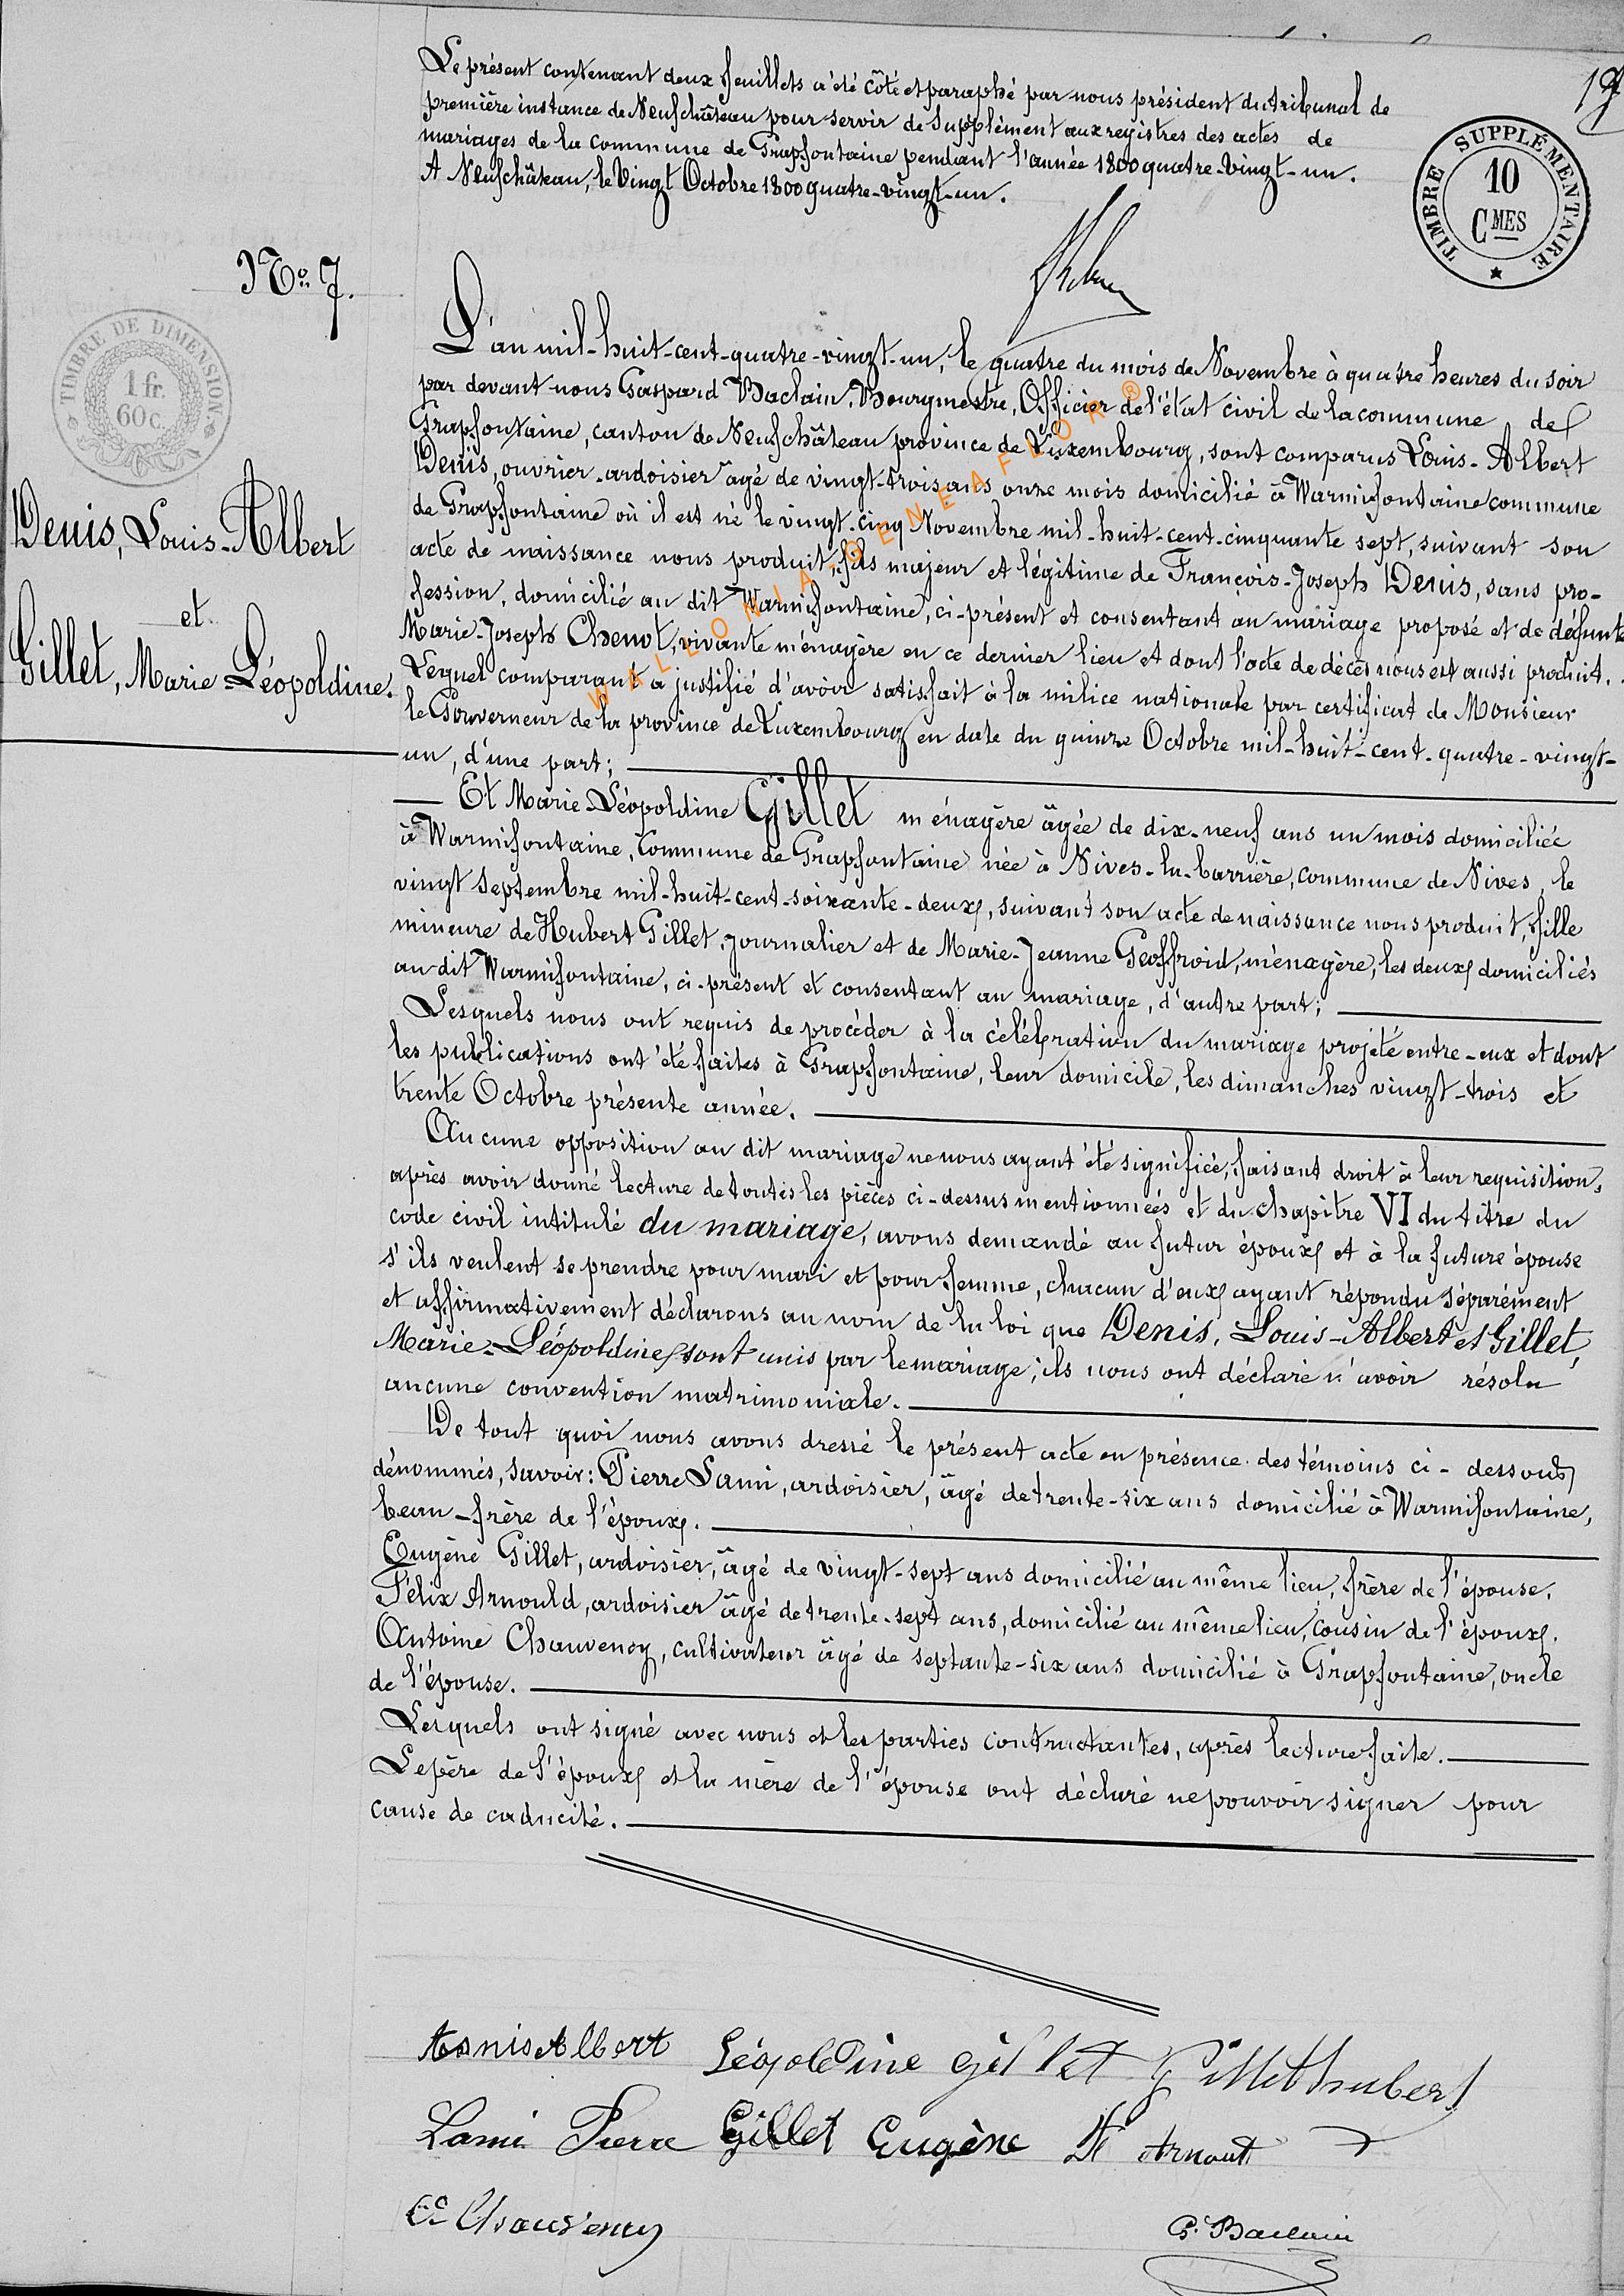 Le présent contenant deux feuillets a été côté et paraphé par nous président du tribunal de
première instance de Neufchâteau pour servir de Supplément aux registres des actes de
mariages de la commune de Grapfontaine pendant l'année 1800 quatre-vingt-un.
A Neufchâteau, le Vingt Octobre 1800 quatre-vingt-un.
TIMBRE SUPPLÉMENTAIRE
10
CMES
No. 7.
TIMBRE DE DIMENSION
1 fr.
60 c.
Denis, Louis-Albert
et
Gillet, Marie-Léopoldine.
L'an mil-huit-cent-quatre-vingt-un, le quatre du mois de Novembre à quatre heures du soir
par devant nous Gaspard Baclain, Bourgmestre, Officier de l'état civil de la commune de
Grapfontaine, canton de Neufchâteau province de Luxembourg, sont comparus Louis-Albert
Denis, ouvrier-ardoisier âgé de vingt-trois ans onze mois domicilié à Warmifontaine commune
de Grapfontaine où il est né le vingt-cinq Novembre mil-huit-cent-cinquante sept, suivant son
acte de naissance nous produit, fils majeur et légitime de François-Joseph Denis, sans pro-
fession, domicilié au dit Warmifontaine, ci-présent et consentant au mariage proposé et de défunte
Marie-Joseph Chenot, vivante ménagère en ce dernier lieu et dont l'acte de décès nous est aussi produit.
Lequel comparant a justifié d'avoir satisfait à la milice nationale par certificat de Monsieur
le Gouverneur de la province de Luxembourg en date du quinze Octobre mil-huit-cent-quatre-vingt-
un, d'une part;
Et Marie-Léopoldine Gillet ménagère âgée de dix-neuf ans un mois domiciliée
à Warmifontaine, Commune de Grapfontaine née à Nives-la-barrière, commune de Nives, le
vingt Septembre mil-huit-cent-soixante-deux, suivant son acte de naissance nous produit, fille
mineure de Hubert Gillet, journalier et de Marie-Jeanne Geoffroid, ménagère, les deux domiciliés
au dit Warmifontaine, ci-présent et consentant au mariage, d'autre part;
Lesquels nous ont requis de procéder à la célébration du mariage projeté entre-eux et dont
les publications ont été faites à Grapfontaine, leur domicile, les dimanches vingt-trois et
trente Octobre présente année.
Aucune opposition au dit mariage ne nous ayant été signifiée, faisant droit à leur requisition,
après avoir donné lecture de toutes les pièces ci-dessus mentionnées et du chapitre VI du titre du
code civil intitulé du mariage, avons demandé au futur époux et à la future épouse
s'ils veulent se prendre pour mari et pour femme, chacun d'eux ayant répondu séparément
et affirmativement déclarons au nom de la loi que Denis, Louis-Albert et Gillet,
Marie-Léopoldine sont unis par le mariage; ils nous ont déclaré n'avoir résolu
aucune convention matrimoniale.
De tout quoi nous avons dressé le présent acte en présence des témoins ci-dessous
dénommés, savoir: Pierre Lami, ardoisier, âgé de trente-six ans domicilié à Warmifontaine,
beau-frère de l'époux.
Eugène Gillet, ardoisier, âgé de vingt-sept ans domicilié au même lieu, frère de l'épouse.
Félix Arnould, ardoisier âgé de trente-sept ans, domicilié au même lieu, cousin de l'époux.
Antoine Chauvency, cultivateur âgé de septante-six ans domicilié à Grapfontaine, oncle
de l'épouse.
Lesquels ont signé avec nous et les parties contractantes, après lecture faite.
Le père de l'époux et la mère de l'épouse ont déclaré ne pouvoir signer pour
cause de caducité.
WALLONIA-GENEAFLOR®
Denis Albert Léopoldine Gillet Gillet hubert
Lami Pierre Gillet Eugène Arnout
Chauvency
G. Baclain